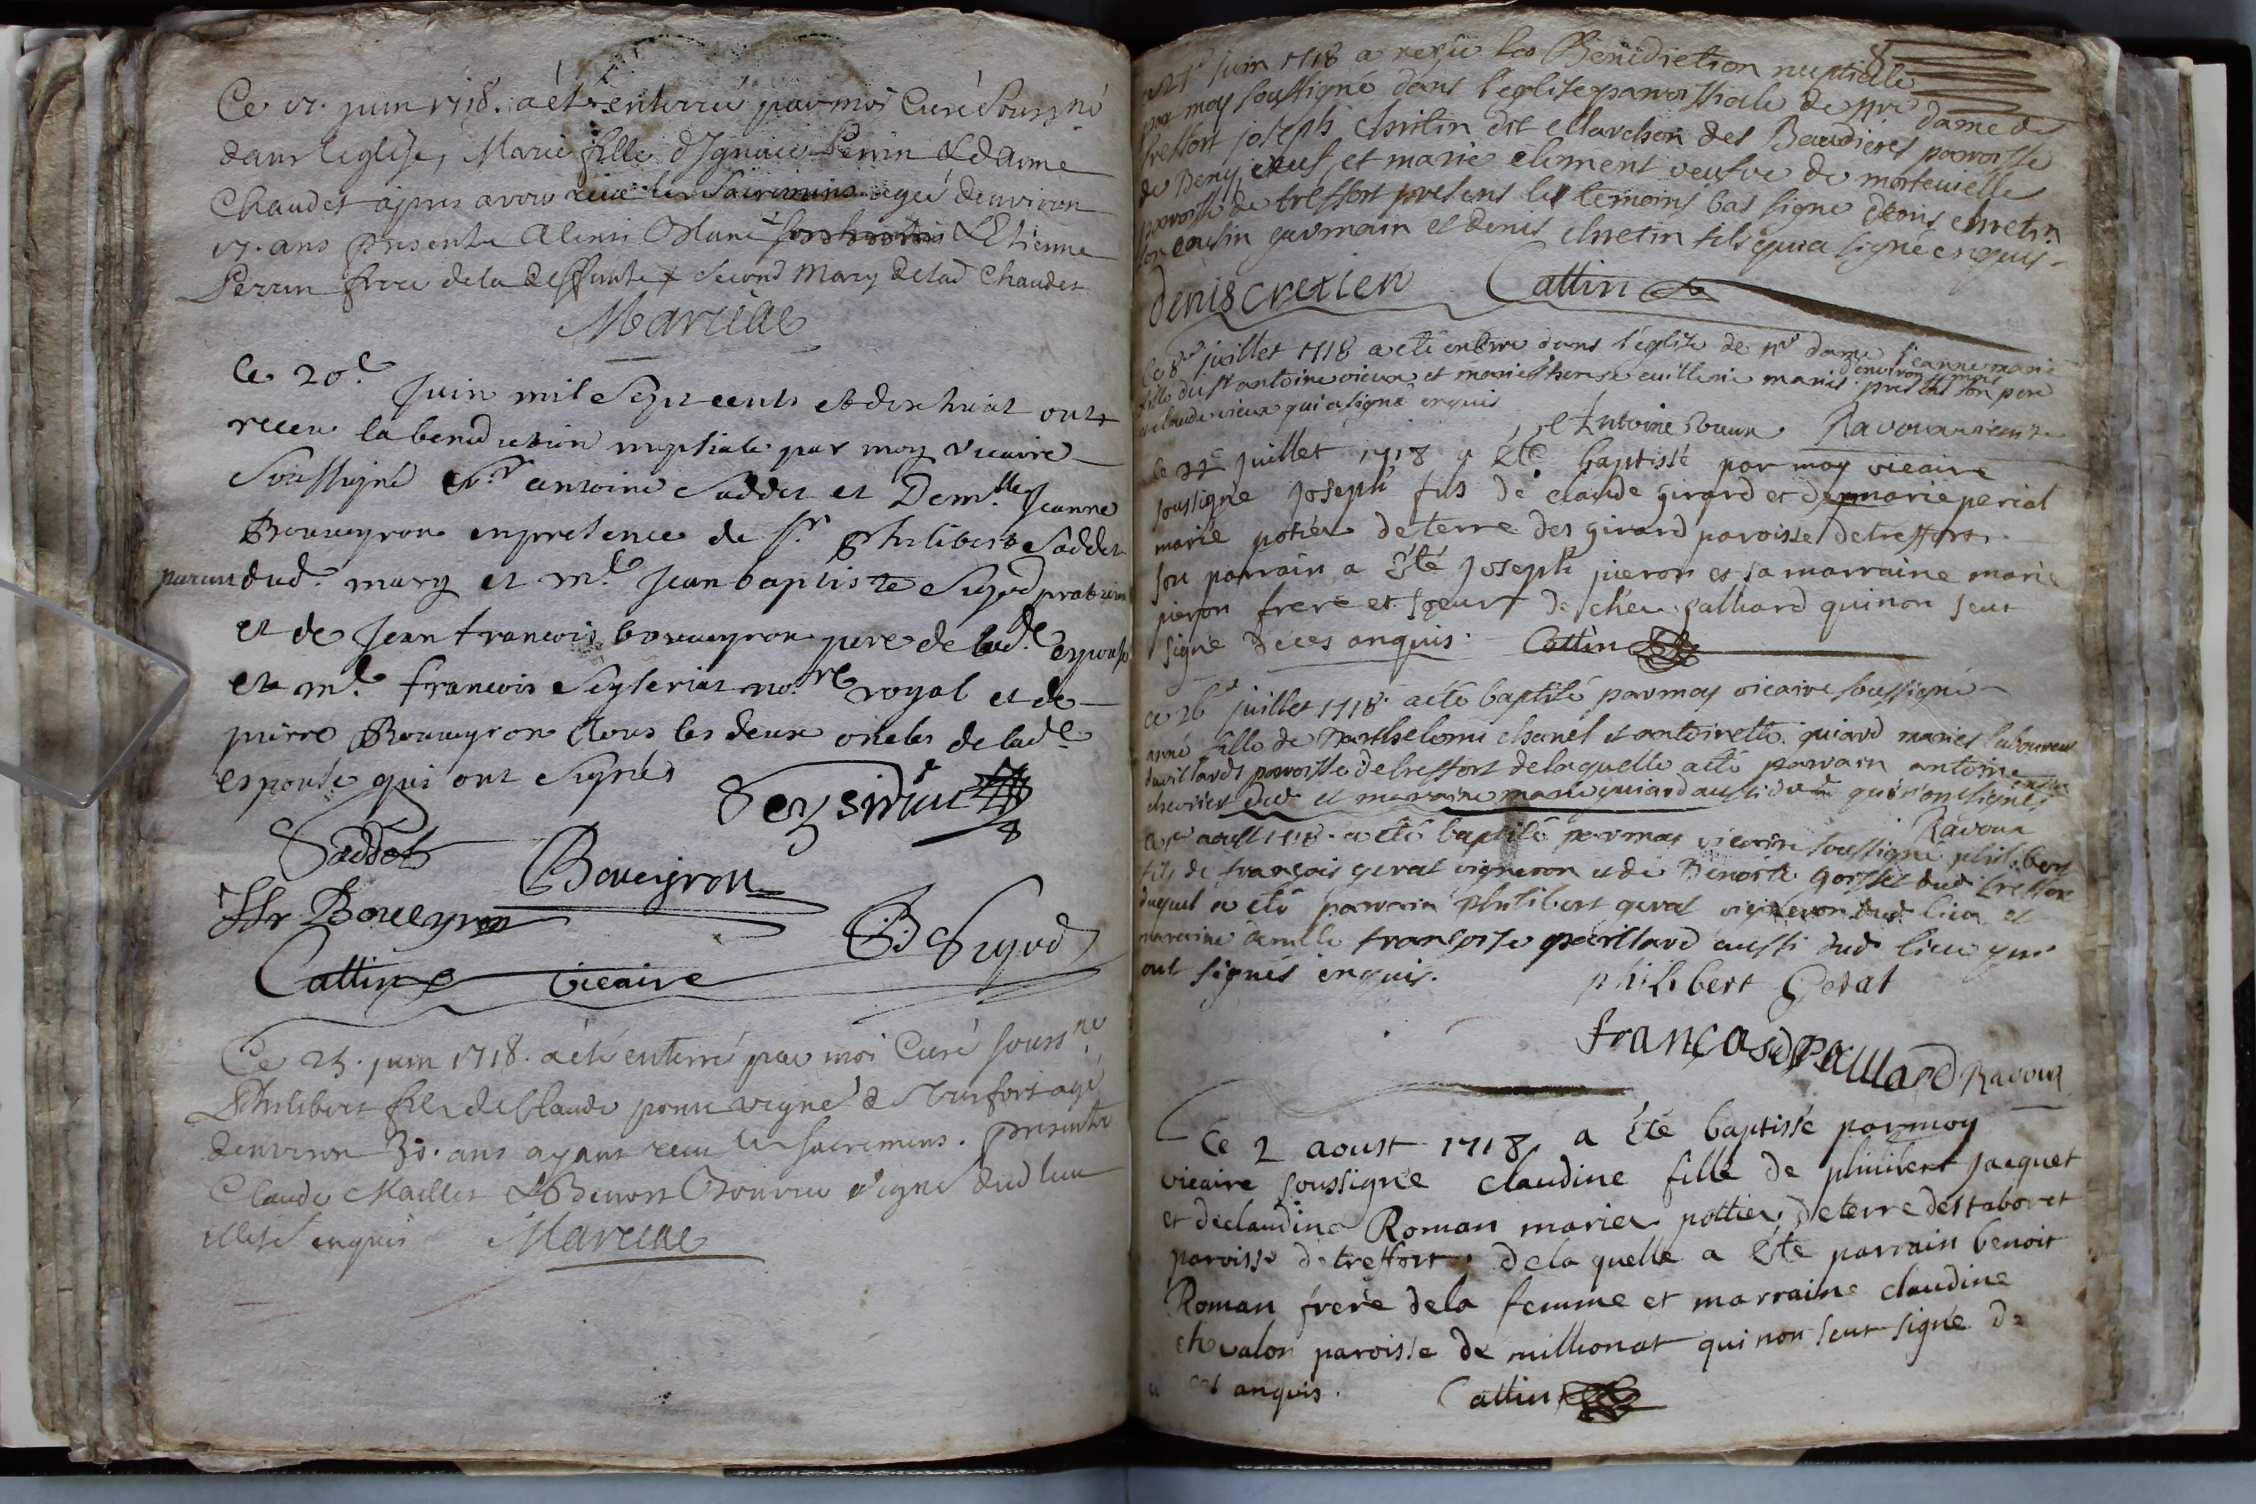 Ce 17. juin 1718. a été enterrée par moi Curé Soussné
dans leglise, Marie fille d'Ignace Perrin & daime
Chaudet apres avoir receu les Sacremens agée denviron
17. ans presents Mané & Etienne
Perrin frere de la deffunte second Mary de lad Chaudet
Marcelle
Ce 20.e
Juin mil Sept cents et dix huict ont
receu la benediction nuptiale par moy vicaire
Soussigné Sr antoine Saddet et Dem.lle Jeanne
Bouveyron en presence de Sr philibert Saddet
parun dud. mary et m.e Jean baptiste Sigod praticien
et de Jean francois bouveyron pere de lad.e espouse
et m.e francois no.re royal et de
pierre Bouveyron tous les deux oncles de lad.e
espouse qui ont signés
Saddet
Boveyron
Boveyron
B Sigod
Cattin vicaire
Ce 23. juin 1718. a été enterré par moi Curé souss.né
Philibert fils de Claude vigné de Treffort agé
denviron 30. ans ayant receu les sacremens. presents
Claude Maillet & Benoit vigné dud lieu
illité enquis Marcelle
juin 1718 a reçu la Benediction nuptialle
par moy soussigné dans l'eglise parroissiale de Nre dame de
treffort joseph chritin dit Marchon des Baudieres paroisse
de veuf et marie clement veufve de
paroisse de treffort presens les temoins bas signe denis chretin
son cousin germain et denis chretin fils qui a signé enquis.
denis cretien Cattin
Ce 8e juillet 1718 a eté enterre dans l'eglise de Nre dame jeanne marie
fille du Sr antoine vieux et marie therese cuillerie mariés presens son pere
denviron mois
et claude vieux qui a signé enquis
Antoine vieux Ravoura
Ce juillet 1718 a êté baptissé par moy vicaire
soussigne joseph fils de claude girard et de marie perial
marié potier de terre des girard paroisse de treffort
son parrain a êté joseph pieron et sa marraine marie
pieron frere et soeur de chez galliard qui non seut
signé de ces anquis. Cattin
ce 26e juillet 1718. a eté baptisé par moy vicaire soussigné
anne fille de Barthelemi chanel et antoinette quiard mariés laboureur
paroisse de treffort de laquelle a eté parrain antoine
chevrier dud et marraine marie quiard aussi dud qui n'ont signés
enquis
Ravoura
Ce aoust 1718. a eté baptisé par moy vicaire soussigné philibert
fils de françois geval vigneron et de Benoite dud treffort
duquel a eté parrain philibert geval vigneron dud. lieu et
maraine françoise paillard aussi dud lieu qui
ont signés enquis.
philibert Gevat
françoise Paillard Ravoura
Ce 2 aoust 1718, a êté baptissé par moy
vicaire soussigné claudine fille de philibert jacquet
et de claudine Roman mariez pottier de terre des taboret
paroisse de treffort, de la quelle a êté parrain benoit
Roman frere de la femme et marraine claudine
chevalon paroisse de millionat qui non seut signé de
ces anquis. Cattin